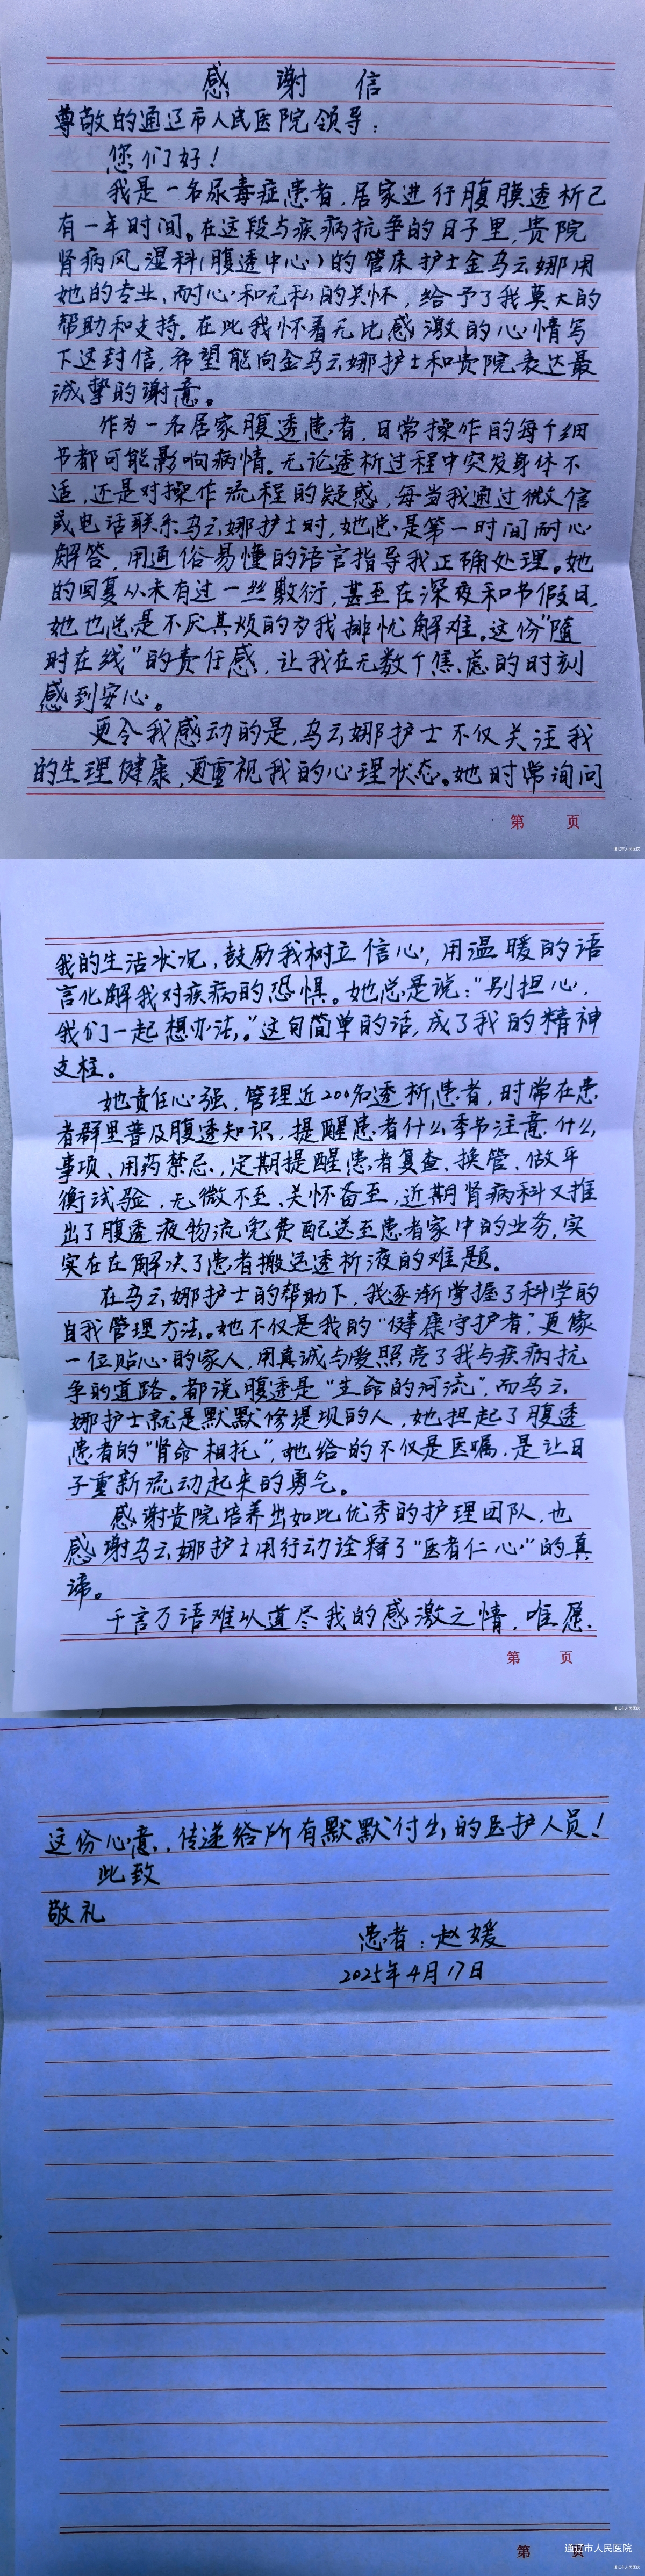 感谢信
尊敬的通辽市人民医院领导：
您们好！
我是一名尿毒症患者，居家进行腹膜透析已
有一年时间。在这段与疾病抗争的日子里，贵院
肾病风湿科（腹透中心）的管床护士金乌云娜用
她的专业、耐心和无私的关怀，给予了我莫大的
帮助和支持。在此我怀着无比感激的心情写
下这封信，希望能向金乌云娜护士和贵院表达最
诚挚的谢意。
作为一名居家腹透患者，日常操作的每个细
节都可能影响病情。无论透析过程中突发身体不
适，还是对操作流程的疑惑，每当我通过微信
或电话联系乌云娜护士时，她总是第一时间耐心
解答，用通俗易懂的语言指导我正确处理。她
的回复从未有过一丝敷衍，甚至在深夜和节假日，
她也总是不厌其烦的为我排忧解难。这份“随
时在线”的责任感，让我在无数个焦虑的时刻
感到安心。
更令我感动的是，乌云娜护士不仅关注我
的生理健康，更重视我的心理状态。她时常询问
第 页
通辽市人民医院
我的生活状况，鼓励我树立信心，用温暖的语
言化解我对疾病的恐惧。她总是说：“别担心，
我们一起想办法，”这句简单的话，成了我的精神
支柱。
她责任心强，管理近200名透析患者，时常在患
者群里普及腹透知识，提醒患者什么季节注意什么
事项、用药禁忌，定期提醒患者复查、换管、做平
衡试验，无微不至、关怀备至，近期肾病科又推
出了腹透液物流免费配送至患者家中的业务，实
实在在解决了患者搬运透析液的难题。
在乌云娜护士的帮助下，我逐渐掌握了科学的
自我管理方法。她不仅是我的“健康守护者”，更像
一位贴心的家人，用真诚与爱照亮了我与疾病抗
争的道路。都说腹透是“生命的河流”，而乌云
娜护士就是默默修堤坝的人，她担起了腹透
患者的“肾命相托”，她给的不仅是医嘱，是让日
子重新流动起来的勇气。
感谢贵院培养出如此优秀的护理团队，也
感谢乌云娜护士用行动诠释了“医者仁心”的真
谛。
千言万语难以道尽我的感激之情，唯愿
第 页
通辽市人民医院
这份心意，传递给所有默默付出的医护人员！
此致
敬礼
患者：赵媛
2025年4月17日
第 页
通辽市人民医院
通辽市人民医院